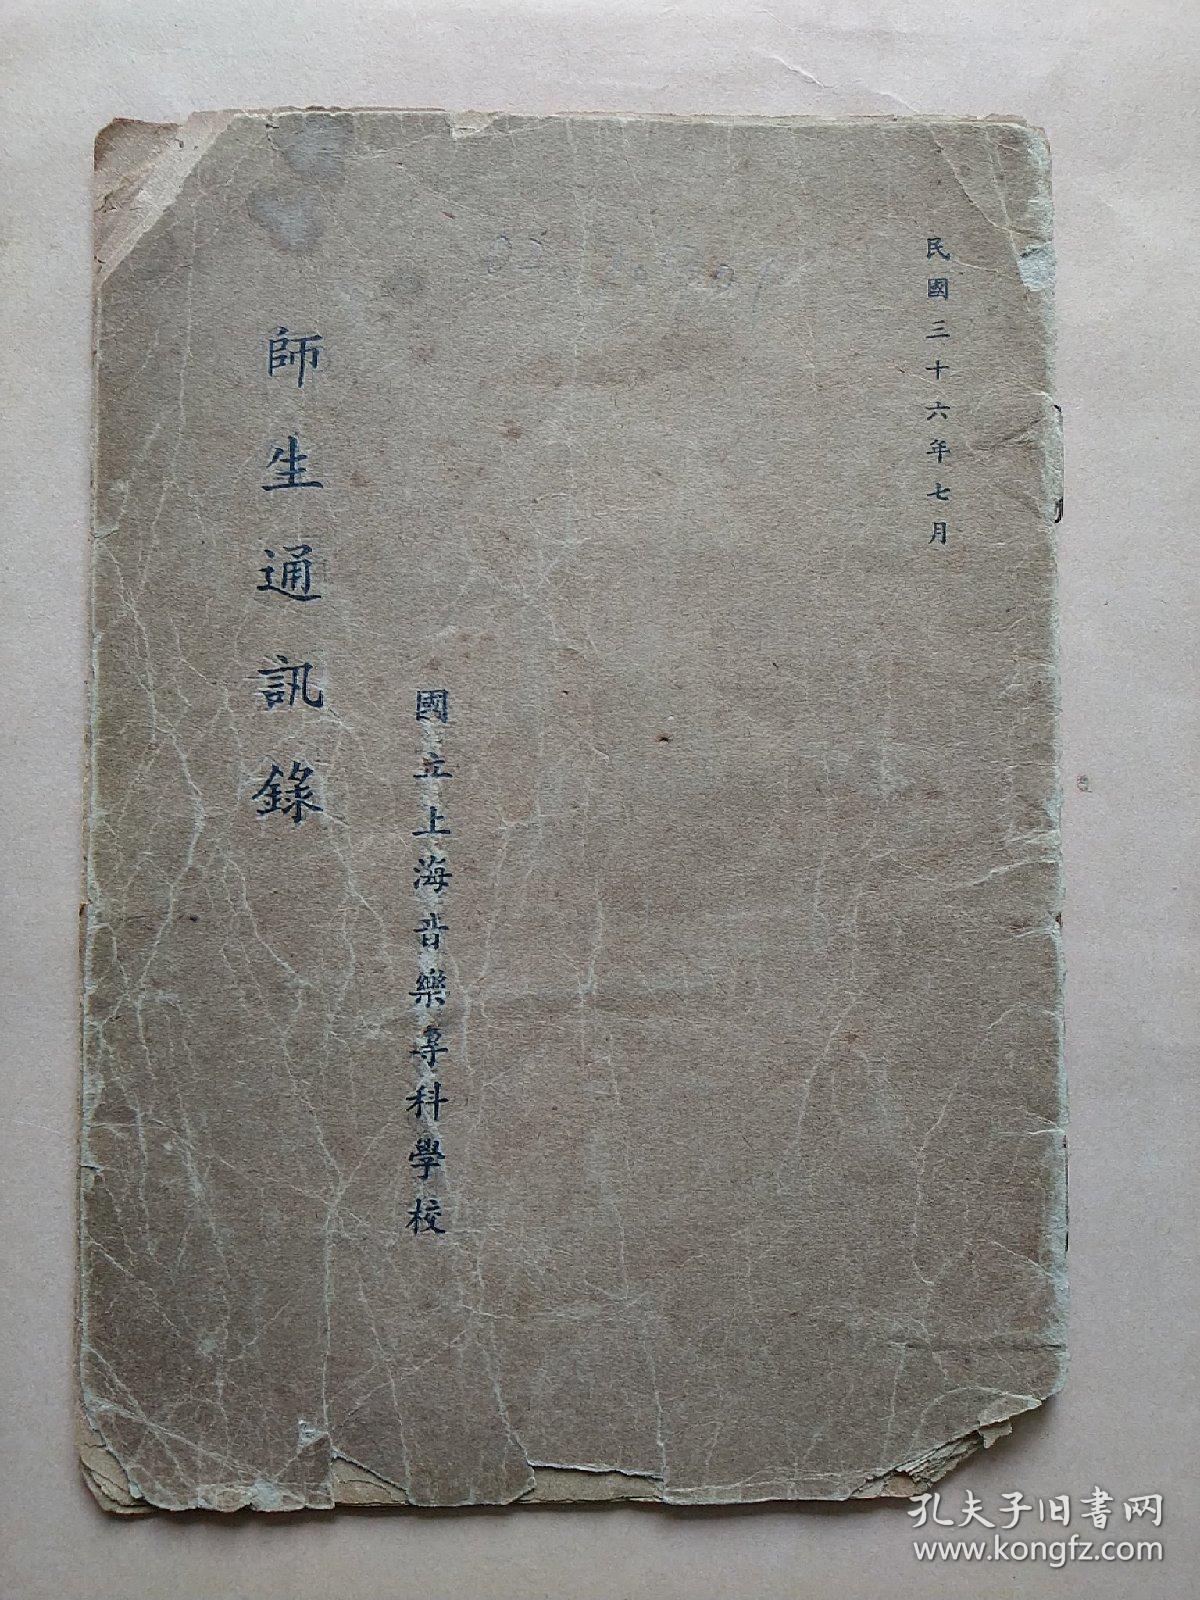 民國三十六年七月
國立上海音樂專科學校
師生通訊錄
孔夫子旧書网
www.kongfz.com